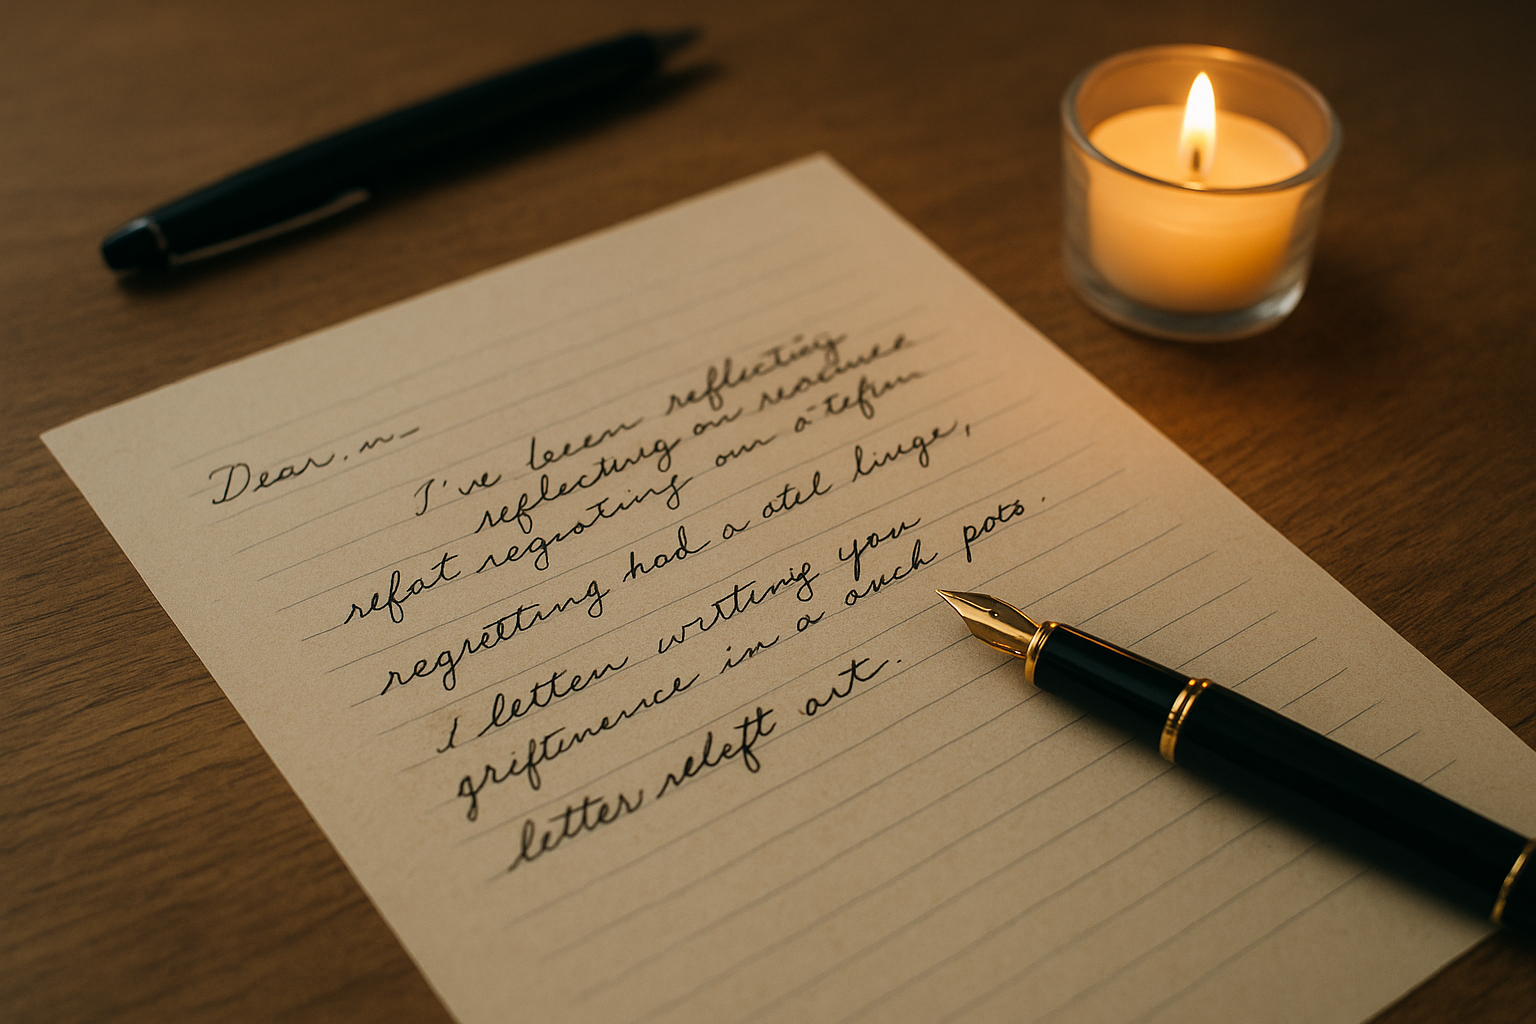 Dear. n–
I've been reflecting
reflecting on
refat regroting our a
regretting had a atel linge,
I letten writing you
griftenence in a ouch pots.
letter releft art.